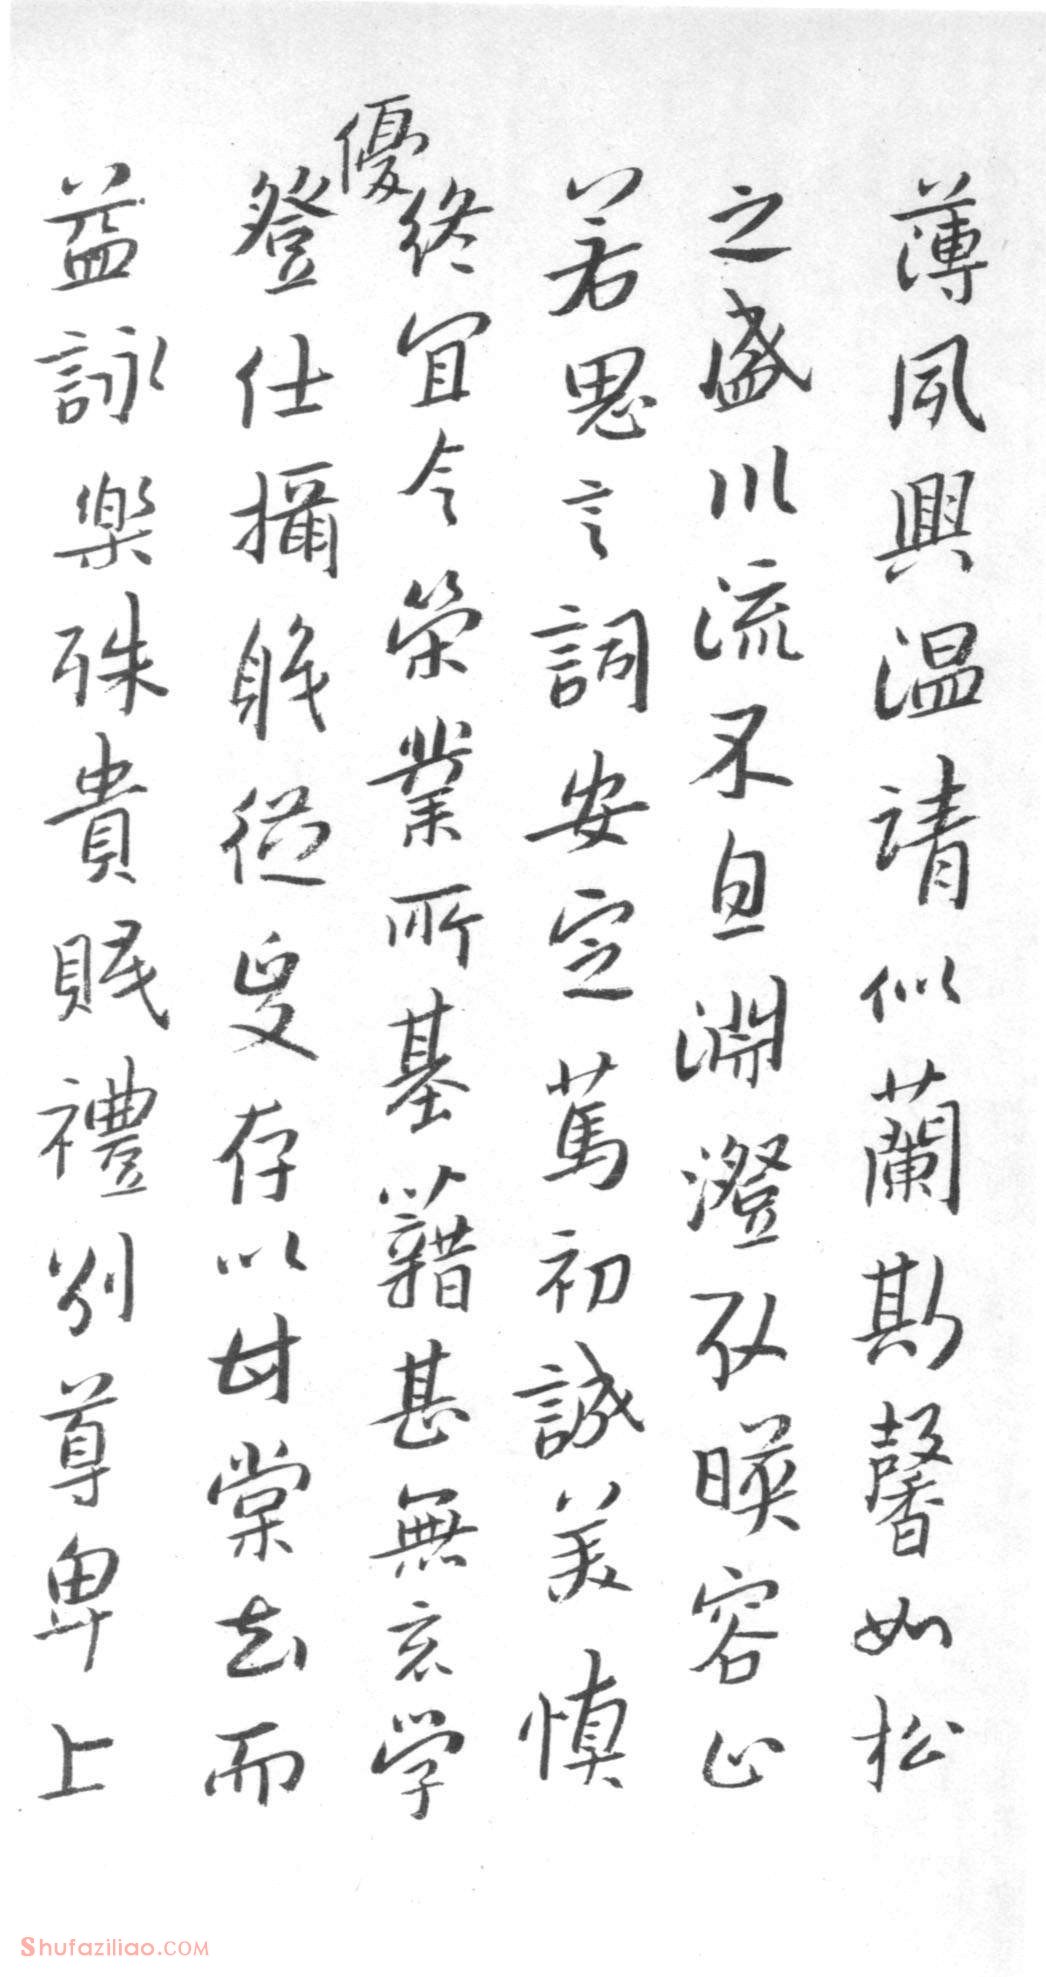 薄夙興温清似蘭斯馨如松
之盛川流不息淵澄取暎容止
若思言詞安定萬初誠美慎
終宜令榮業所基籍甚無竟学
優
登仕攝職從政存以甘棠去而
益詠樂殊貴賤禮別尊卑上
Shufaziliao.COM